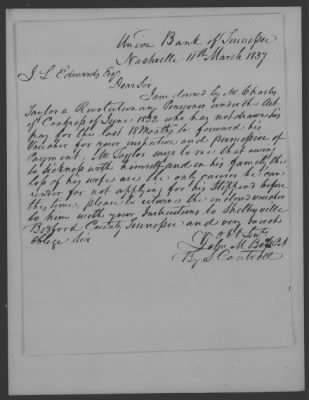 Union Bank of Tennessee
Nashville 11th March 1837
J L Edwards Esq
Dear Sir
I am desired by Mr Charles
Taylor a Revolutionary Pensioner under the Act
of Congress of June 1832 who has not drawn his
pay for the last 18 Months to forward his
Voucher for your inspection and permission of
Payment, Mr Taylor says to me that owing
to sickness with himself and in his family the
loss of his wife are the only causes he can
render for not applying for his Stipend before
this time please to return the inclosed voucher
to him with your Instructions to Shelbyville
Bedford County Tennessee and very much
oblige Sir
Yr Obt Svt
John M Bass Pt
By S Cantrell